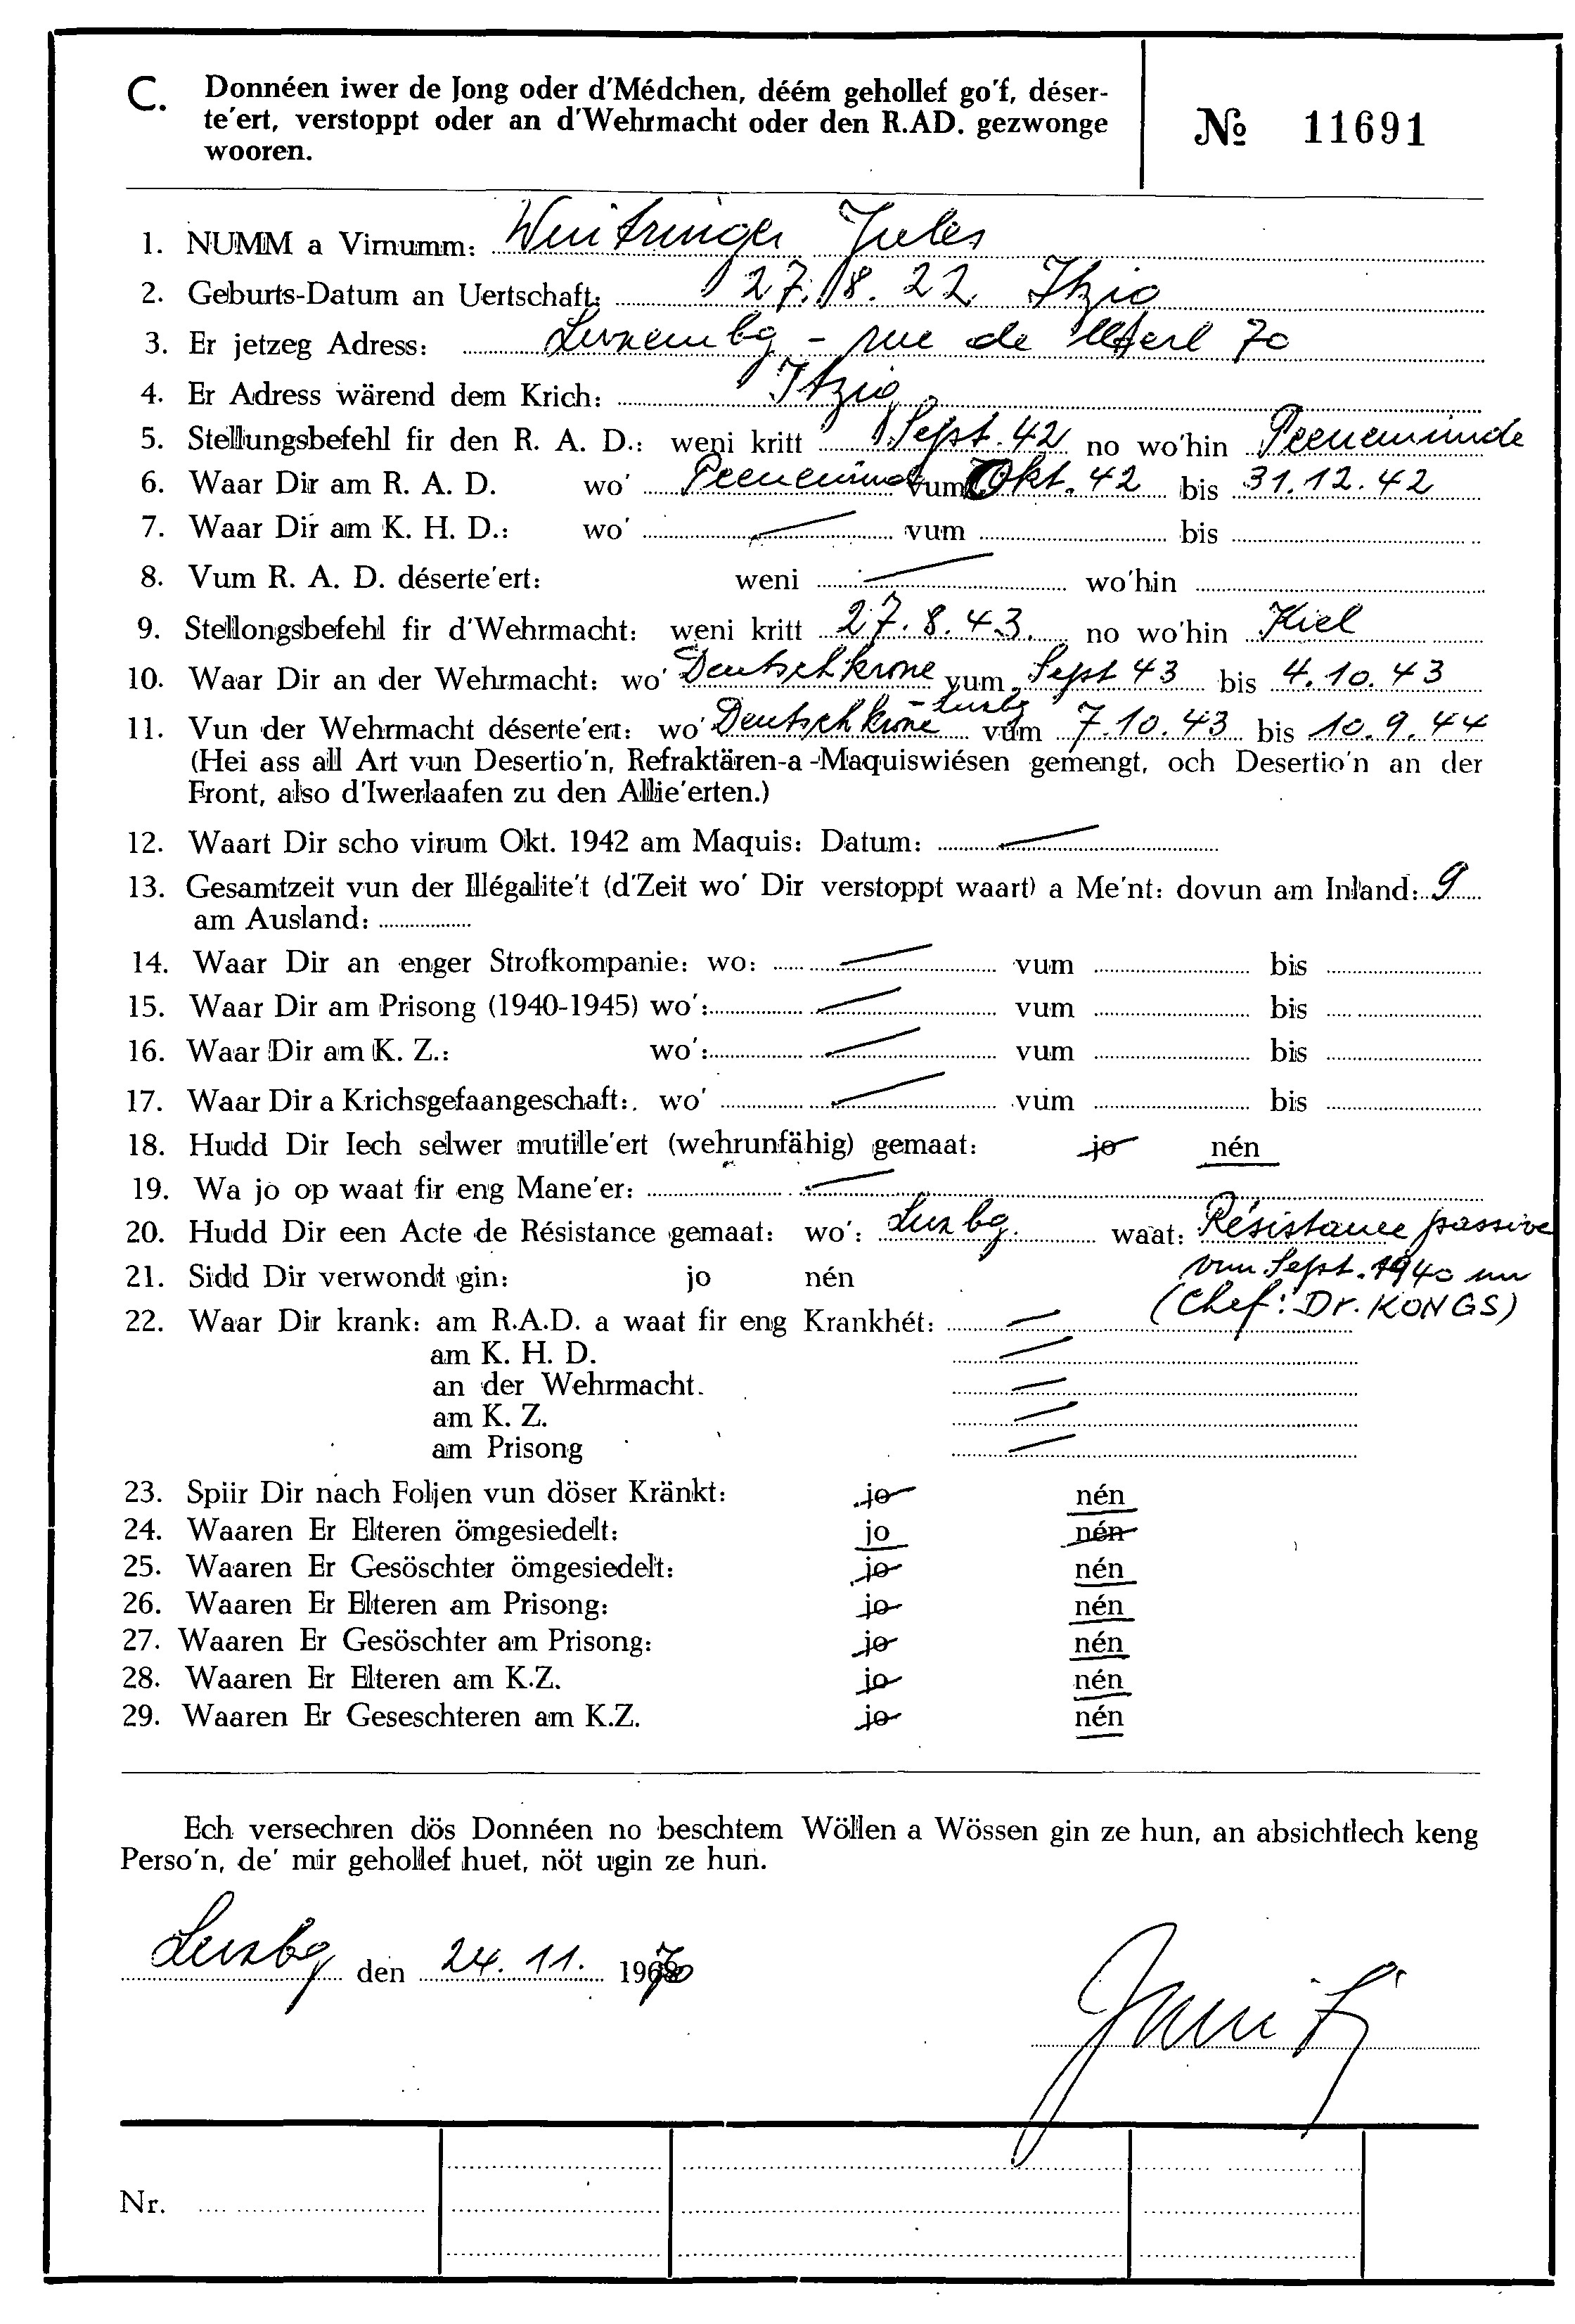 C. Donnéen iwer de Jong oder d'Médchen, déém gehollef go'f, déser-
te'ert, verstoppt oder an d'Wehrmacht oder den R.AD. gezwonge
wooren.
№ 11691
1. NUMM a Virnumm: Weitringer Jules
2. Geburts-Datum an Uertschaft: 27. 8. 22 Itzig
3. Er jetzeg Adress: Luxembg - rue de Merl 70
4. Er Adress wärend dem Krich: Itzig
5. Stellungsbefehl fir den R. A. D.: weni kritt Sept. 42 no wo'hin Peenemünde
6. Waar Dir am R. A. D. wo' Peenemünde vum Okt. 42 bis 31.12.42
7. Waar Dir am K. H. D.: wo' vum bis
8. Vum R. A. D. déserte'ert: weni wo'hin
9. Stellongsbefehl fir d'Wehrmacht: weni kritt 27.8.43. no wo'hin Kiel
10. Waar Dir an der Wehrmacht: wo' Deutschkrone vum Sept 43 bis 4.10.43
11. Vun der Wehrmacht déserte'ert: wo' Deutschkrone - Luxbg vum 7.10.43 bis 10.9.44
(Hei ass all Art vun Desertio'n, Refraktären-a-Maquiswiésen gemengt, och Desertio'n an der
Front, also d'Iwerlaafen zu den Allie'erten.)
12. Waart Dir scho virum Okt. 1942 am Maquis: Datum:
13. Gesamtzeit vun der Illégalite't (d'Zeit wo' Dir verstoppt waart) a Me'nt: dovun am Inland: 9
am Ausland:
14. Waar Dir an enger Strofkompanie: wo: vum bis
15. Waar Dir am Prisong (1940-1945) wo': vum bis
16. Waar Dir am K. Z.: wo': vum bis
17. Waar Dir a Krichsgefaangeschaft: wo' vum bis
18. Hudd Dir Iech selwer mutille'ert (wehrunfähig) gemaat: jo nén
19. Wa jo op waat fir eng Mane'er:
20. Hudd Dir een Acte de Résistance gemaat: wo': Luxbg. waat: Résistance passive
vum Sept. 1940 un
21. Sidd Dir verwondt gin: jo nén
(Chef: Dr. KONGS)
22. Waar Dir krank: am R.A.D. a waat fir eng Krankhét:
am K. H. D.
an der Wehrmacht.
am K. Z.
am Prisong
23. Spiir Dir nach Foljen vun döser Kränkt: jo nén
24. Waaren Er Elteren ömgesiedelt: jo nén
25. Waaren Er Gesöschter ömgesiedelt: jo nén
26. Waaren Er Elteren am Prisong: jo nén
27. Waaren Er Gesöschter am Prisong: jo nén
28. Waaren Er Elteren am K.Z. jo nén
29. Waaren Er Geseschteren am K.Z. jo nén
Ech versechren dös Donnéen no beschtem Wöllen a Wössen gin ze hun, an absichtlech keng
Perso'n, de' mir gehollef huet, nöt ugin ze hun.
Luxbg den 24. 11. 1970
Nr.